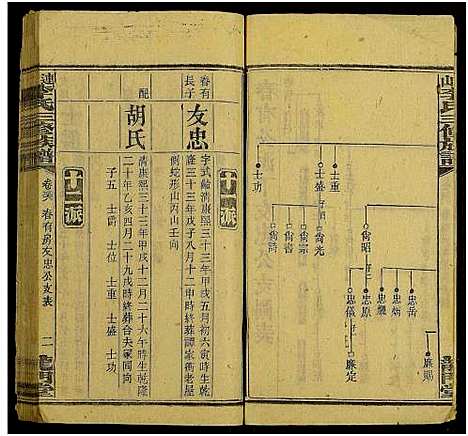 李氏三修族譜
士功
士盛
士重
尙喬
尙宗
尙光
尙昭
忠儀
忠原
忠燕
忠炳
忠岳
廉定
廉賜
春有
長子
友忠
字式齡清康熙三十三年甲戌五月初六寅時生乾
隆三十三年戊子八月十二申時終葬譚家衝老屋
側蛇形山丙山壬向
配
胡氏
清康熙三十三年甲戌十二月二十六午時生乾隆
二十年乙亥四月二十九戌時終葬合夫冢同向
子五 士爵 士位 士重 士盛 士功
十二派
漣李氏三修族譜
春有房友忠公支表
龍門堂